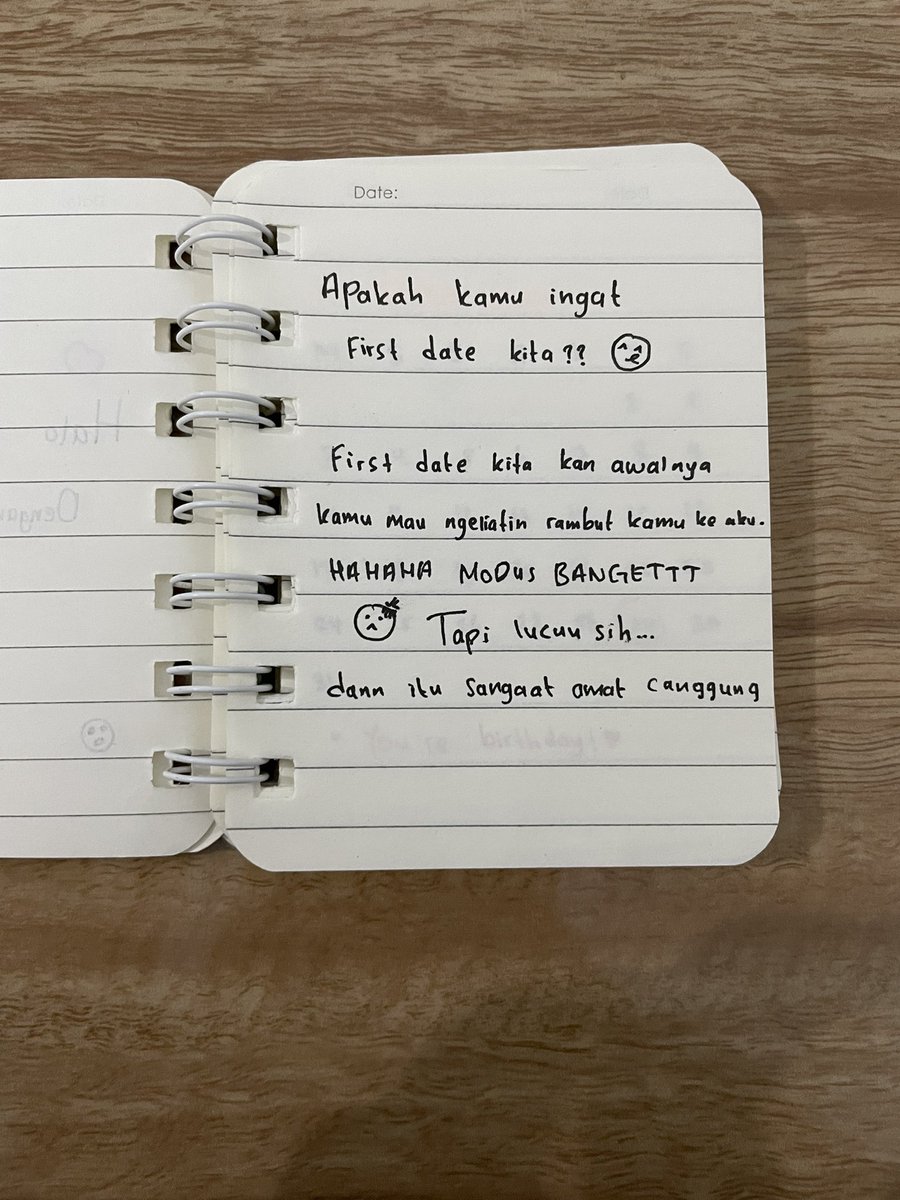 Halo
Date:
Apakah kamu ingat
First date kita??
First date kita kan awalnya
kamu mau ngeliatin rambut kamu ke aku.
HAHAHA MODUS BANGETTT
Tapi lucuu sih...
dann itu sangaat amat canggung
You're birthday!